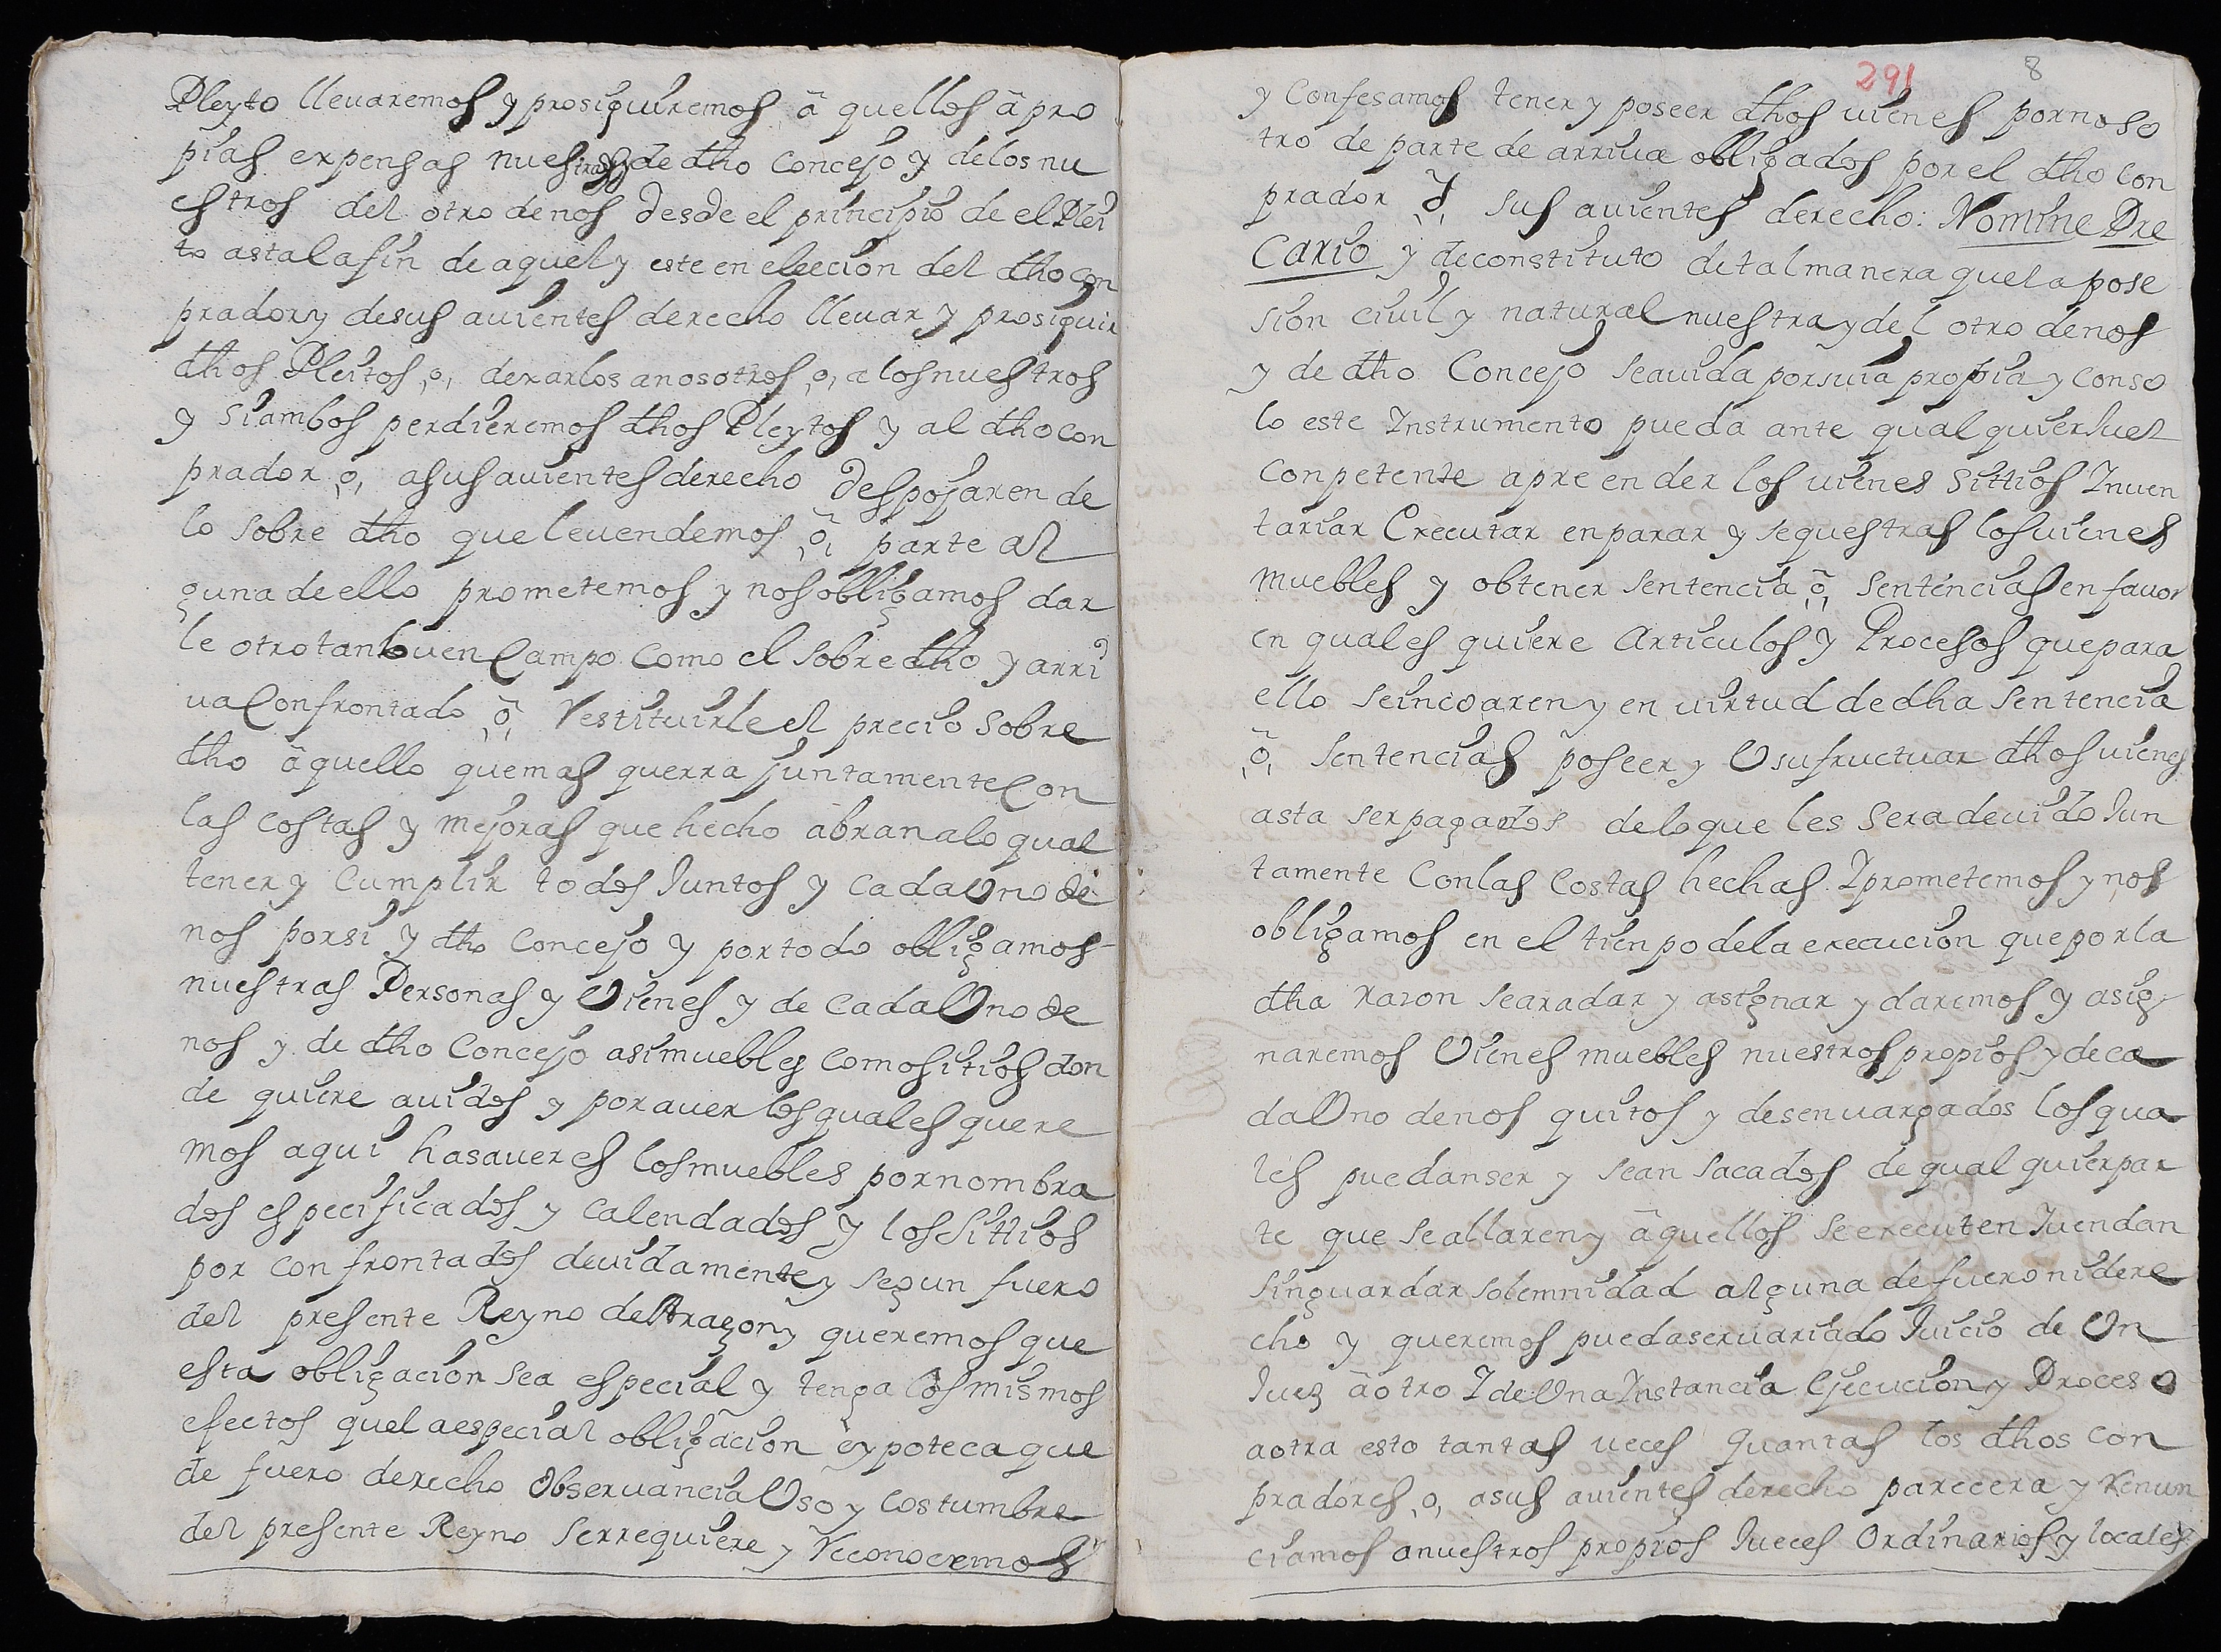 Pleyto lleuaremos y prosiguiremos â quellos â pro
pias expensas nuestras y de dho Concejo y delos nu
estros del otro denos desde el principio de el Plei
to astalafin de aquel y este en eleccion del dho con
prador y desus auientes derecho lleuar y prosiguir
dhos Pleitos ,o, dexarlos anosotros ,o, a losnuestros
y siambos perdieremos dhos Pleytos y al dho con
prador ,o, asusauientes derecho despojaren de
lo sobre dho que leuendemos ,ô, parte al
guna de ello prometemos y nos obligamos dar
le otrotanbuen Campo como el sobre dho y arri
ua Confrontado ,ô, Restituirle el precio sobre
dho âquello quemas querra juntamente Con
las costas y mejoras que hecho abran alo qual
tener y Cumplir todos Juntos y cada Uno de
nos porsi y dho Concejo y portodo obligamos
nuestras Personas y Vienes y de Cada Uno de
nos y de dho Concejo asimuebles Comositios don
de quiere auidos y porauer losquales quere
mos aqui hasaueres losmuebles pornombra
dos especificados y Calendados y los Sittios
por confrontados deuidamente y segun fuero
del presente Reyno de Aragon y queremos que
esta obligacion sea especial y tenga los mismos
efectos quela especial obligacion è ypoteca que
de fuero derecho Obseruancia Uso y Costumbre
del presente Reyno Serrequiere y Reconocemos
291 8
y Confesamos tener y poseer dhos vienes pornoso
tro de parte de arriua obligados por el dho Con
prador ,ô, sus auientes derecho: Nomine Pre
Cario y deconstituto detalmanera quela pose
sion ciuil y natural nuestra y del otro denos
y de dho Concejo seauida porsuia propia y conso
lo este Instrumento pueda ante qualquier Juez
Conpetente apreender los vienes Sittios Inuen
tariar Executar enparar y sequestras los vienes
muebles y obtener sentencia ,ô, sentencias en fauor
en quales quiere Articulos y Procesos quepara
ello seincoaren y en uirtud dedha sentencia
,ô, sentencias poseer y Usufructuar dhos vienes
asta serpagados deloque les sera deuido Jun
tamente Conlas Costas hechas. Y prometemos y nos
obligamos en el tienpo dela execucion queporla
dha Razon seara dar y asignar y daremos y asig
naremos Vienes muebles nuestros propios y de ca
da Uno denos quitos y desenuargados losqua
les puedanser y sean sacados de qual quierpar
te que seallaren y âquellos seexecuten Juendan
singuardar solemnidad alguna de fuero nidere
cho y queremos puedaseruariado Juicio de Un
Juez â otro Y de Una Instancia Ejecucion y Proceso
aotra esto tantas ueces quantas los dhos Con
pradores ,o, asus auientes derecho parecera y Renun
ciamos anuestros propios Jueces Ordinarios y locales